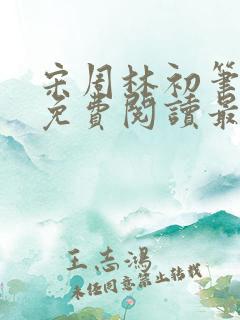 宋周林初筆
免費閱讀最
王志鴻
未经同意禁止转载